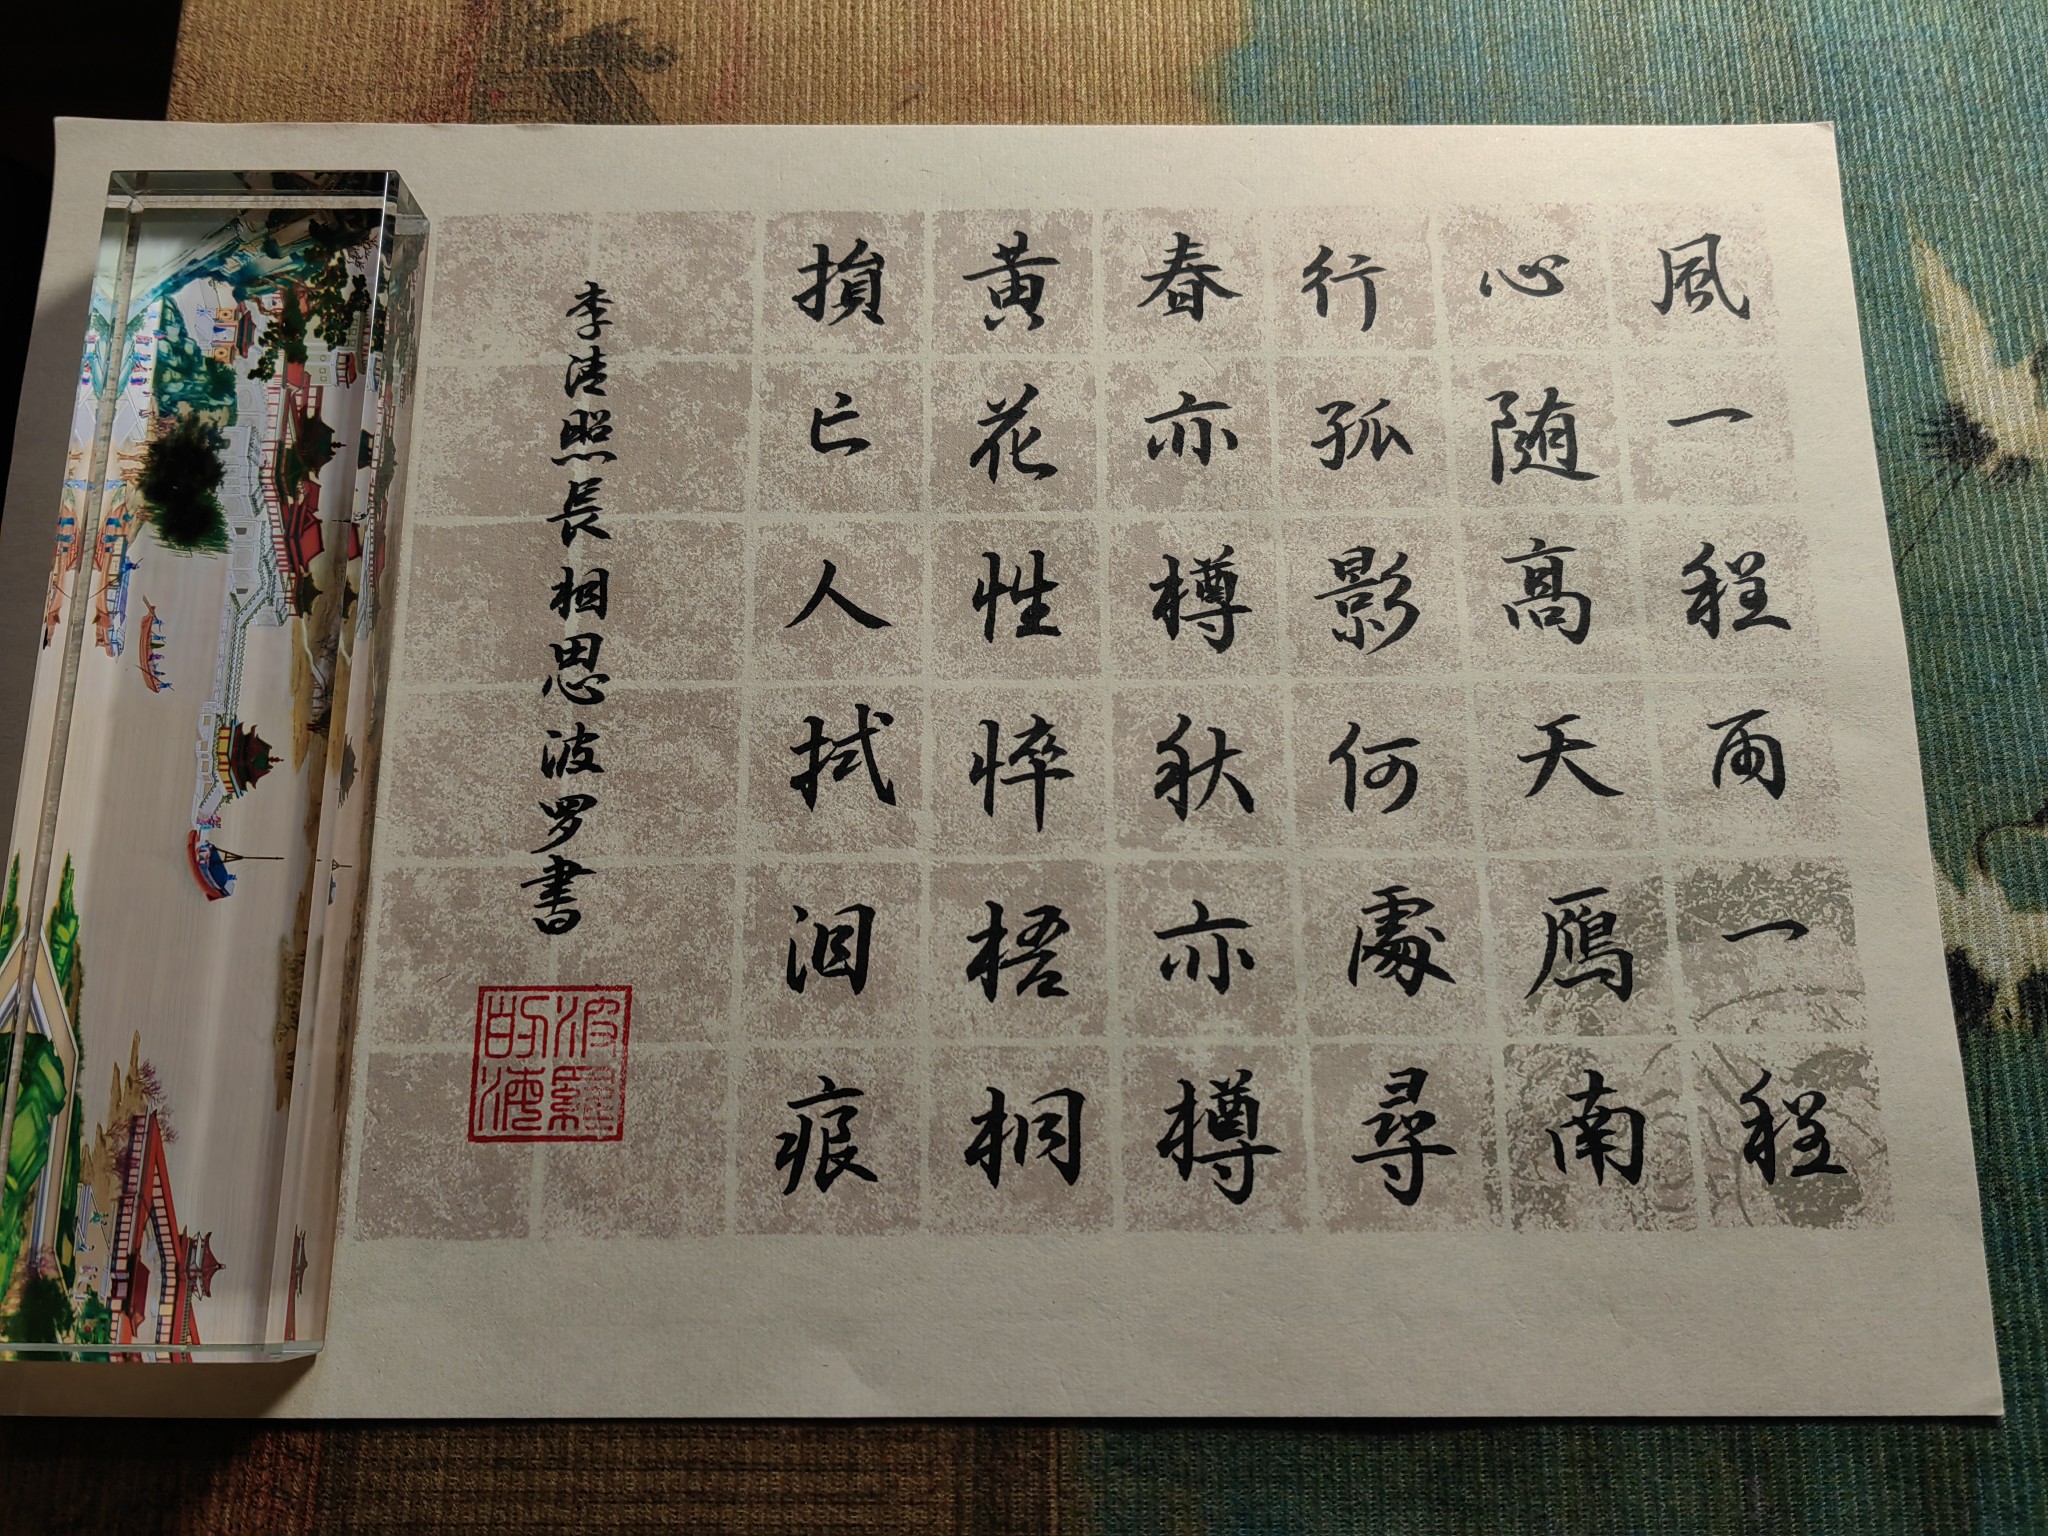 風一程雨一程
心随高天鴈南
行孤影何處尋
春亦樽秋亦樽
黄花性悴梧桐
損亡人拭泪痕
李清照長相思波罗書
波羅
的海